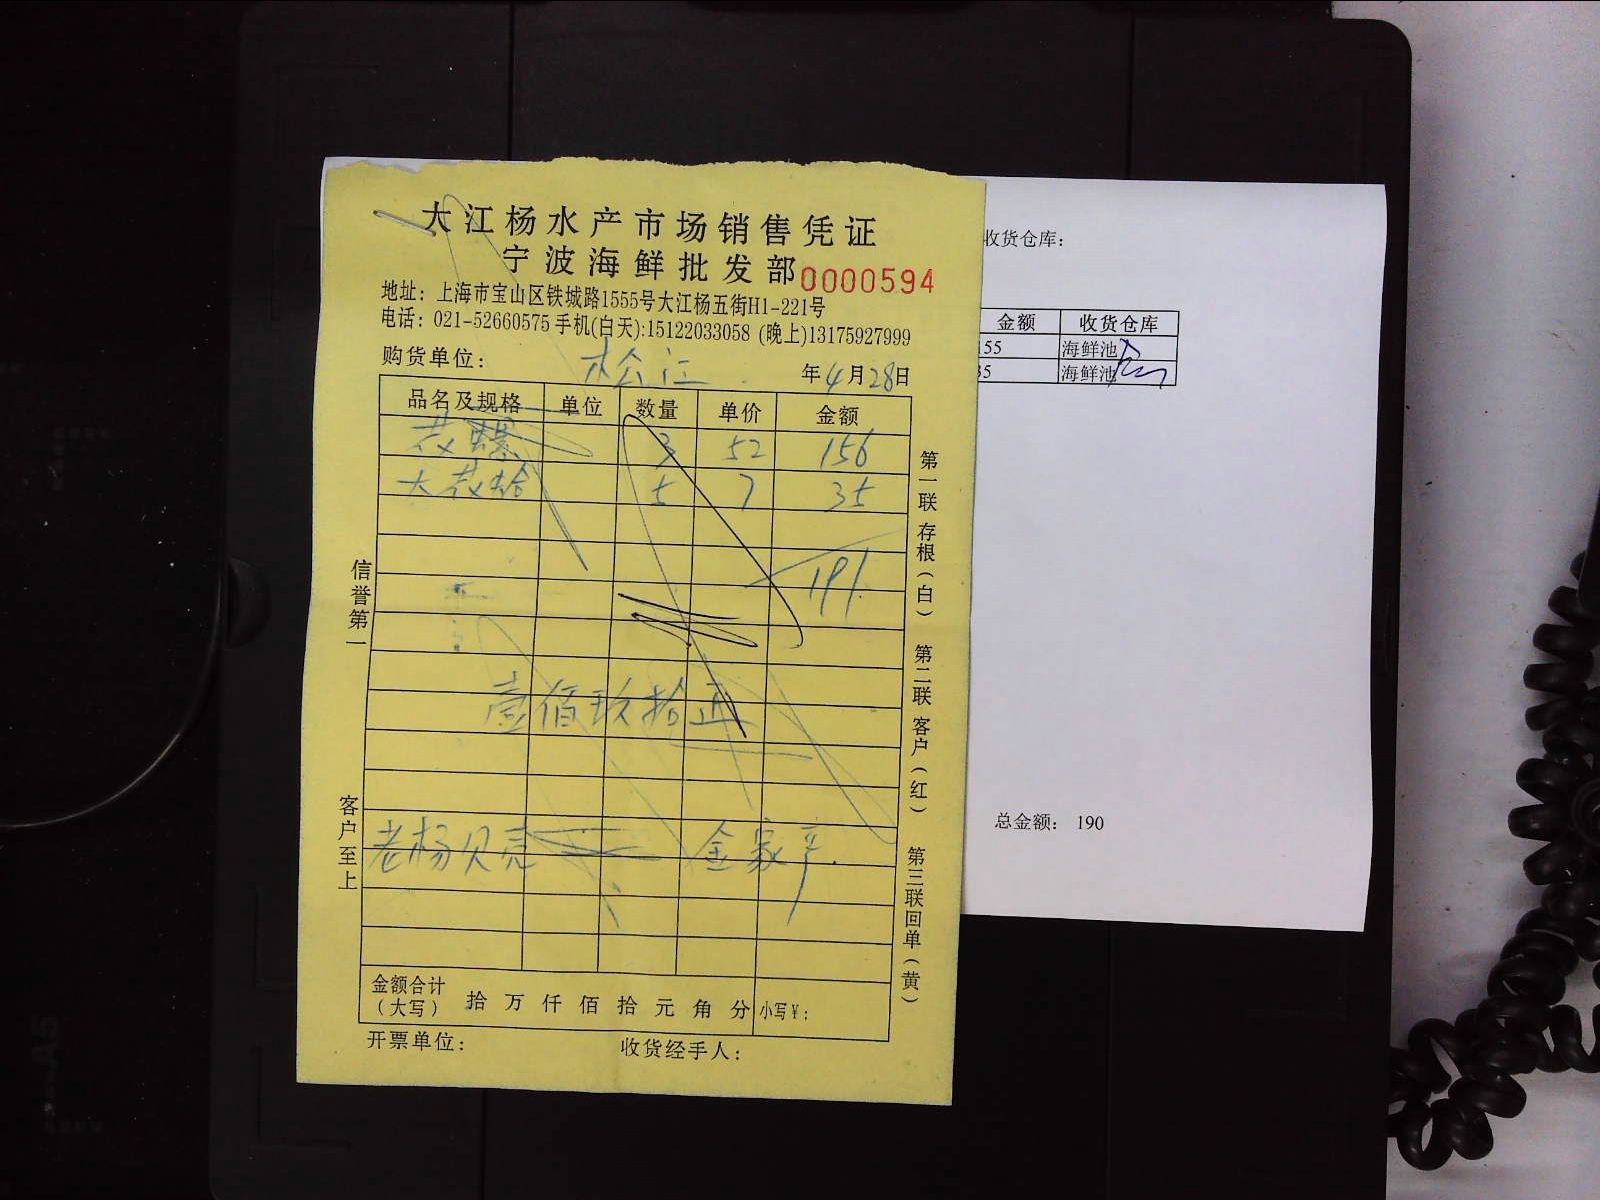 大江杨水产市场销售凭证
宁波海鲜批发部 0000594
地址：上海市宝山区铁城路1555号大江杨五街H1-221号
电话：021-52660575 手机(白天):15122033058 (晚上)13175927999
购货单位： 松江 年4月28日
品名及规格 单位 数量 单价 金额
花螺 3 52 156
大花蛤 5 7 35
191
壹佰玖拾正
老杨贝壳 金家产
金额合计
（大写） 拾 万 仟 佰 拾 元 角 分 小写￥：
开票单位： 收货经手人：
信誉第一
客户至上
第一联 存根（白）
第二联 客户（红）
第三联 回单（黄）
收货仓库：
金额 收货仓库
155 海鲜池
35 海鲜池
总金额： 190